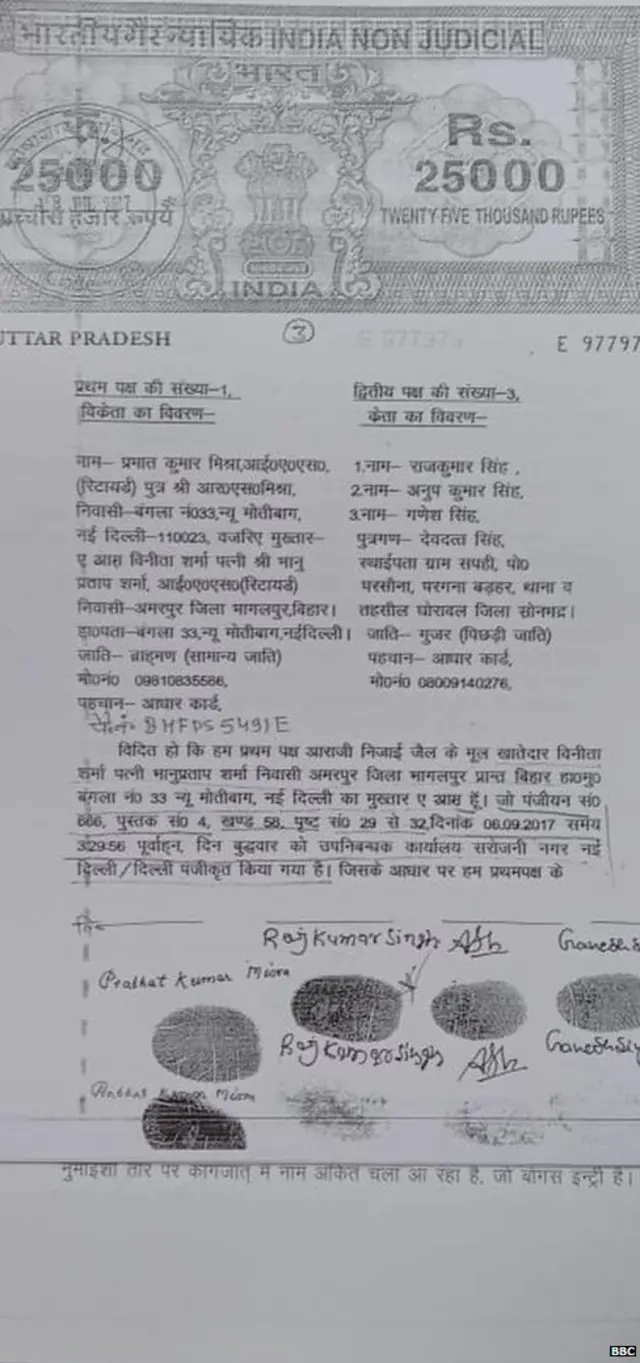 भारतीय गैर न्यायिक INDIA NON JUDICIAL
भारत
Rs.
25000
25000
पच्चीस हजार रूपये
TWENTY FIVE THOUSAND RUPEES
INDIA
UTTAR PRADESH
3
E 97797
प्रथम पक्ष की संख्या–1,
विकेता का विवरण–
नाम– प्रभात कुमार मिश्रा,आई०ए०एस०,
(रिटायर्ड) पुत्र श्री आर०एस०मिश्रा,
निवासी–बंगला नं०33,न्यू मोतीबाग,
नई दिल्ली–110023, वजरिए मुख्तार–
ए आम विनीता शर्मा पत्नी श्री भानु
प्रताप शर्मा, आई०ए०एस०(रिटायर्ड)
निवासी–अमरपुर जिला भागलपुर,बिहार।
हा०पता–बंगला 33,न्यू मोतीबाग,नईदिल्ली।
जाति– ब्राह्मण (सामान्य जाति)
मो०नं० 09810835586,
पहचान– आधार कार्ड,
पै०नं० BHFPS5491E
द्वितीय पक्ष की संख्या–3,
केता का विवरण–
1.नाम– राजकुमार सिंह ,
2.नाम– अनुप कुमार सिंह,
3.नाम– गणेश सिंह,
पुत्रगण– देवदत्त सिंह,
स्थाईपता ग्राम सपही, पो०
परसौना, परगना बड़हर, थाना व
तहसील घोरावल जिला सोनभद्र।
जाति– गुजर (पिछड़ी जाति)
पहचान– आधार कार्ड,
मो०नं० 08009140276,
विदित हो कि हम प्रथम पक्ष आराजी निजाई जैल के मूल खातेदार विनीता
शर्मा पत्नी भानुप्रताप शर्मा निवासी अमरपुर जिला भागलपुर प्रान्त बिहार हा०मु०
बंगला नं० 33 न्यू मोतीबाग, नई दिल्ली का मुख्तार ए आम हूँ। जो पंजीयन सं०
666, पुस्तक सं० 4, खण्ड 58, पृष्ट सं० 29 से 32,दिनांक 06.09.2017 समय
3:29:56 पूर्वाहन, दिन बुद्धवार को उपनिबन्धक कार्यालय सरोजनी नगर नई
दिल्ली/दिल्ली पंजीकृत किया गया है। जिसके आधार पर हम प्रथमपक्ष के
Raj Kumar Singh
Prabhat Kumar Misra
Raj Kumar Singh
Prabhat Kumar Misra
नुमाइशी तौर पर कागजात् में नाम अंकित चला आ रहा है, जो बोगस इन्ट्री है।
BBC